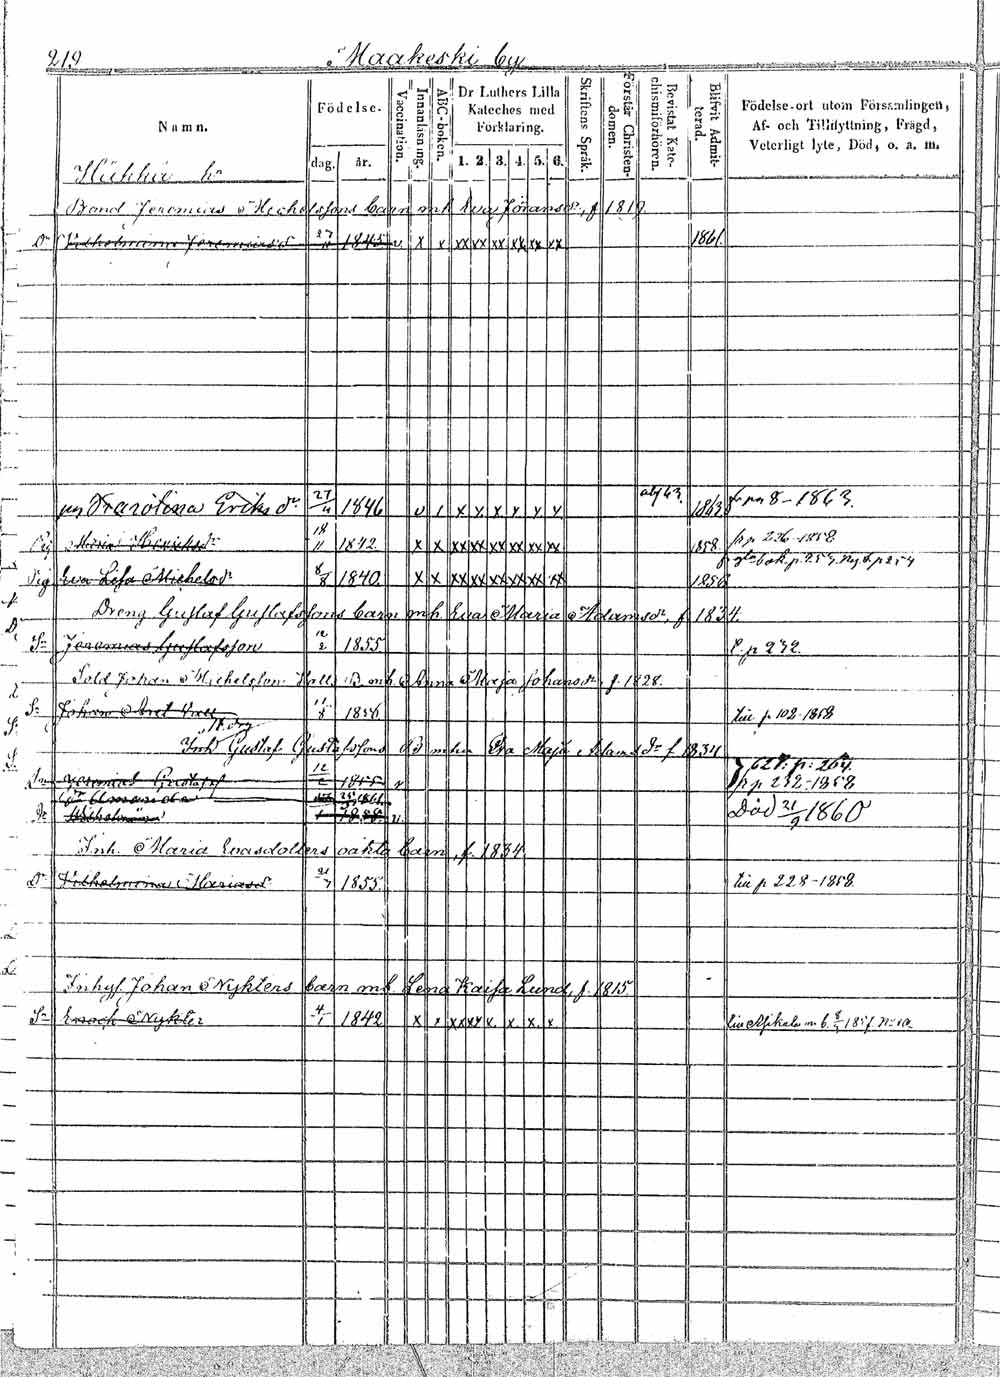 219 Maakeski by
Namn.
Födelse-
dag. år.
Vaccination.
Innanläsning.
ABC-boken.
Dr Luthers Lilla
Kateches med
Förklaring.
1. 2. 3. 4. 5. 6.
Skriftens Språk.
Förstår Christen-
domen.
Bevistat Kate-
chismiförhören.
Blifvit Admit-
terad.
Födelse-ort utom Församlingen,
Af- och Tillflyttning, Frägd,
Veterligt lyte, Död, o. a. m.
Bond Jeremias Michelssons barn mh Eva Jöransdr, f 1819.
Dr Vilhelmina Jeremiasdr 1845 v x v xx xx xx xx xx xx 1861.
pig Karolina Eriksdr 27/11 1846 v 1 x x x x x x abf 63. 1863 fr pg 8-1863.
Pig Maria Henriksdr 18/11 1842. x x xx xx xx xx xx xx 1858. fr p 236-1858.
Pig Eva Lisa Michelsdr 8/8 1840. x x xx xx xx xx xx xx 1856
Dreng Gustaf Gustafssons barn mh. Eva Maria Adamsdr, f 1834.
Sn Jeremias Gustafsson 12/2 1855 p 232.
Sold Johan Michelsson Valls B mh Anna Maja Johansdr, f. 1828.
Sn Johan Axel Vall 1856 till p 102-1858
Inh Gustaf Gustafssons B mhu Eva Maja Adamsdr f 1834
Sn Jeremias Gustafss 12/2 1855 v p 232-1858
Amanda 1861.
Dr Wilhelmina 1858. v. Död 21/9 1860
Inh. Maria Evasdotters oäkta barn, f. 1834
Dr Vilhelmina Mariasdr 21/7 1855. till p 228-1858.
Inhys. Johan Nykters barn mh. Lena Kaisa Lund, f. 1815.
Sn Enoch Nykter 4/1 1842 x x xx xx x. x x. x